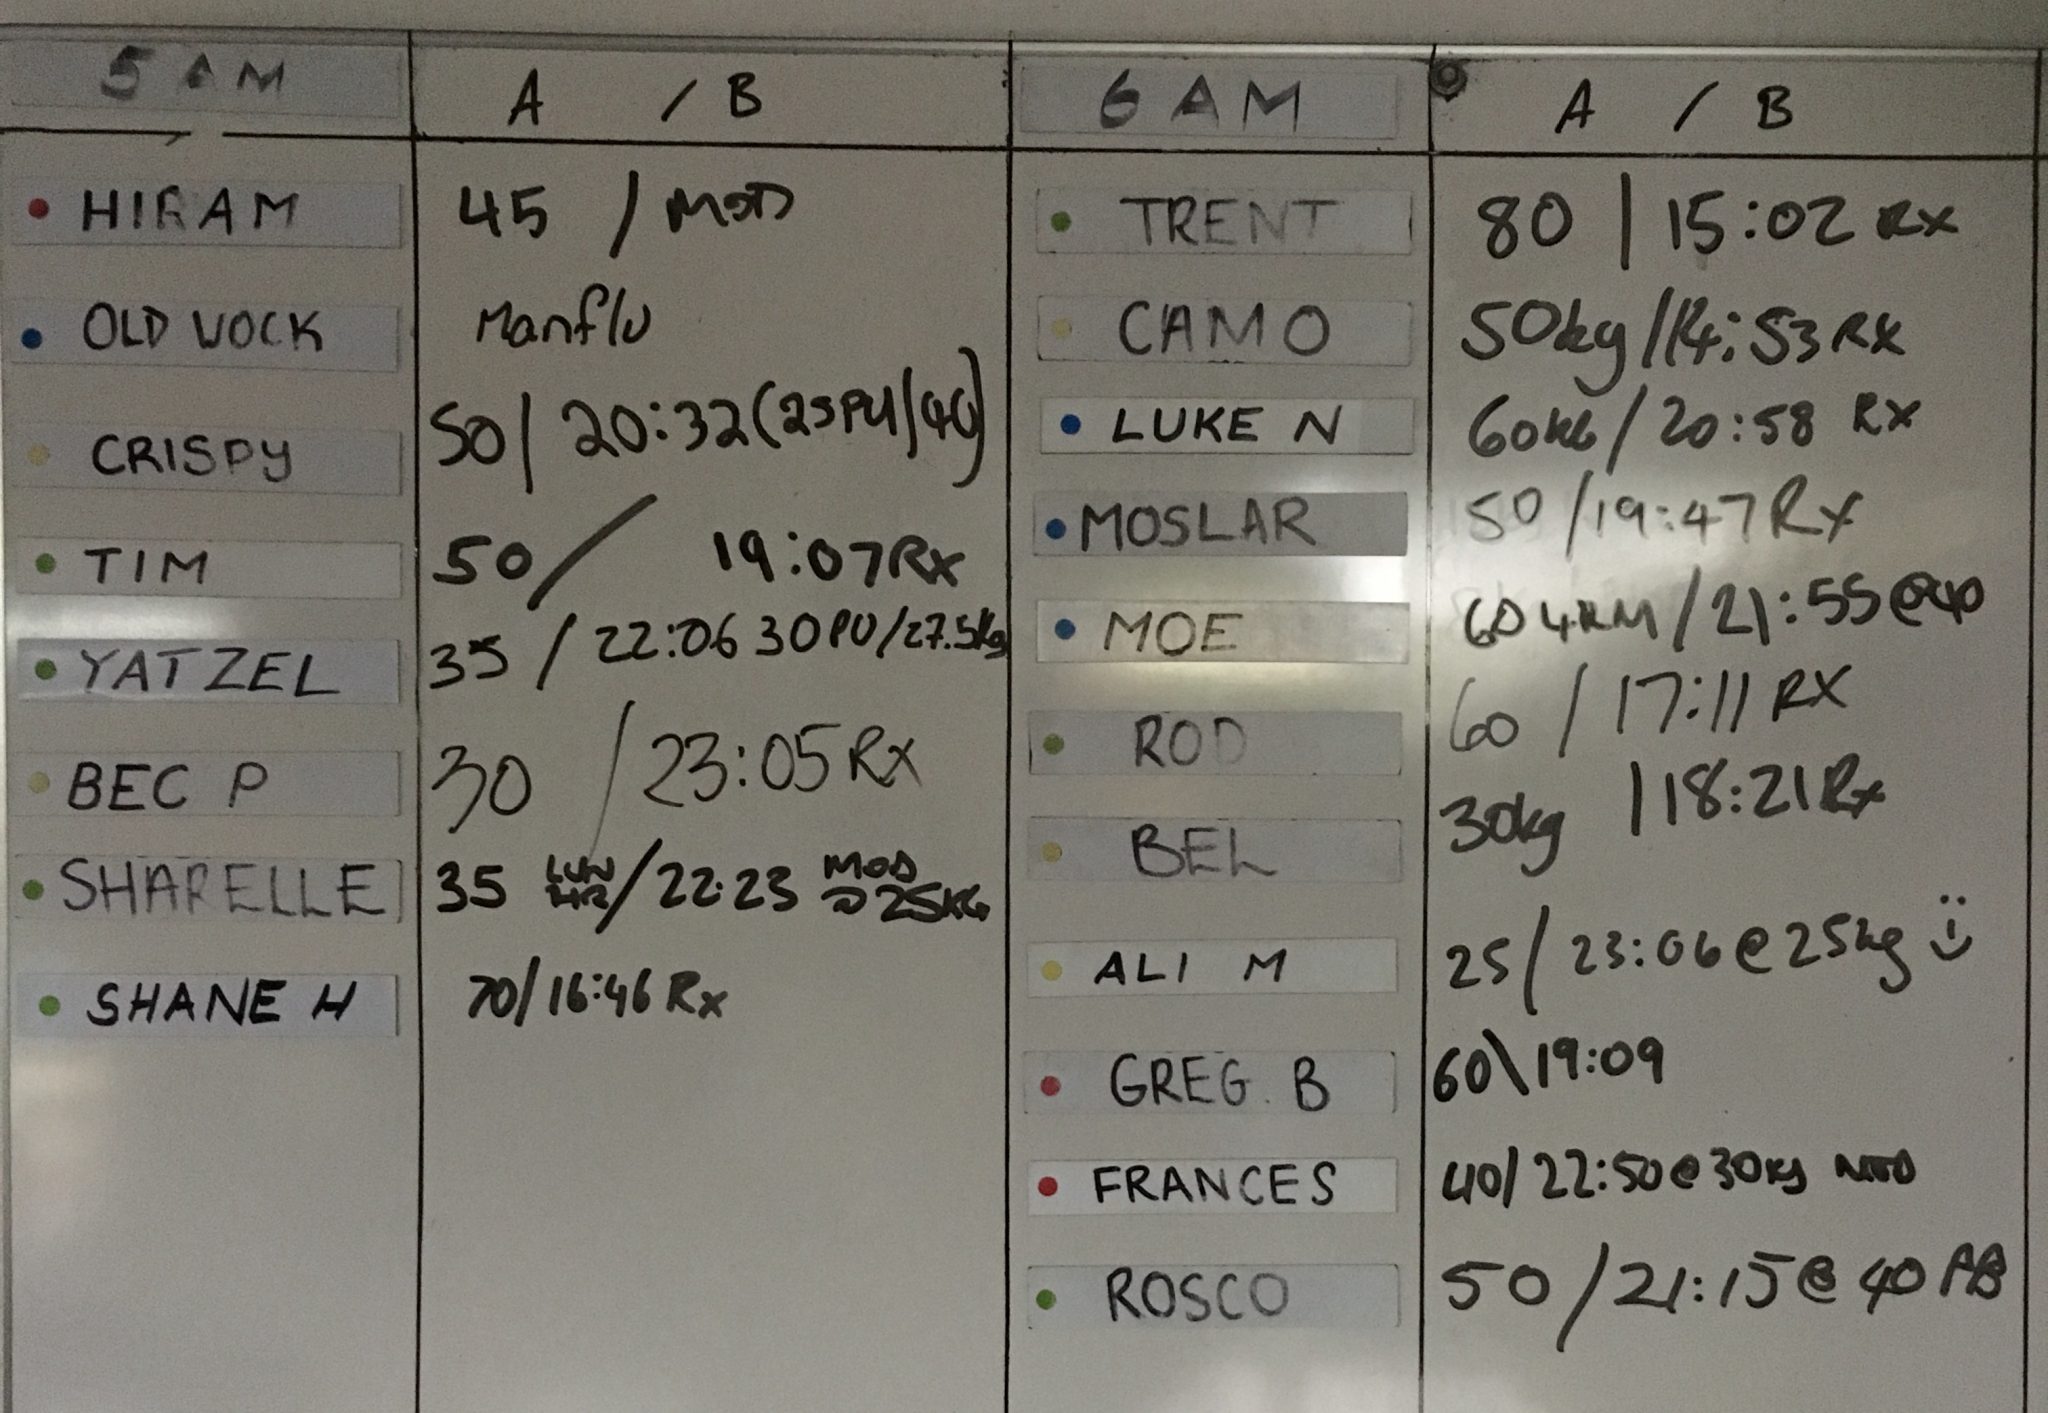 5 AM A / B
HIRAM 45 / MOD
OLD WOCK Manflu
CRISPY 50 / 20:32 (25PU/40)
TIM 50 / 19:07 Rx
YATZEL 35 / 22:06 30PU/27.5kg
BEC P 30 / 23:05 Rx
SHARELLE 35 / 22:23 MOD @ 25KG
SHANE H 70/16:46 Rx
6 AM A / B
TRENT 80 / 15:02 Rx
CAMO 50kg / 14:53 RX
LUKE N 60KG / 20:58 RX
MOSLAR 50 / 19:47 RX
MOE 60 / 21:55 @40
ROD 60 / 17:11 RX
BEL 30kg / 18:21 Rx
ALI M 25 / 23:06 @ 25kg
GREG. B 60\19:09
FRANCES 40/22:50 @ 30kg
ROSCO 50 / 21:15 @ 40 AB